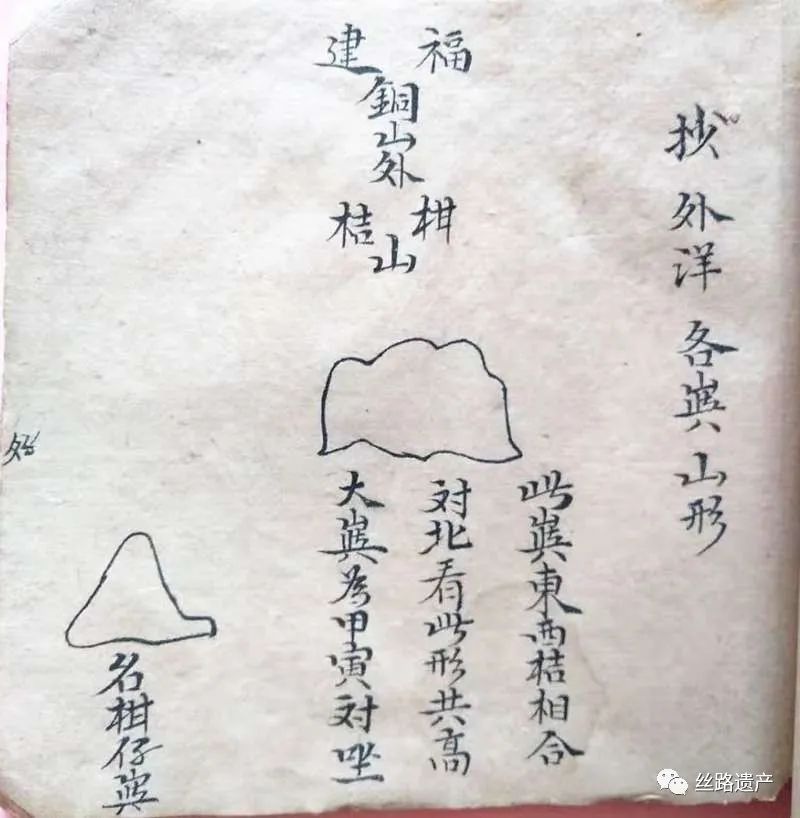 抄外洋各㠘山形
福建
銅山外
柑桔
山
此㠘東西桔相合
对北看此形共高
大㠘為甲寅对坐
名柑仔㠘
丝路遗产